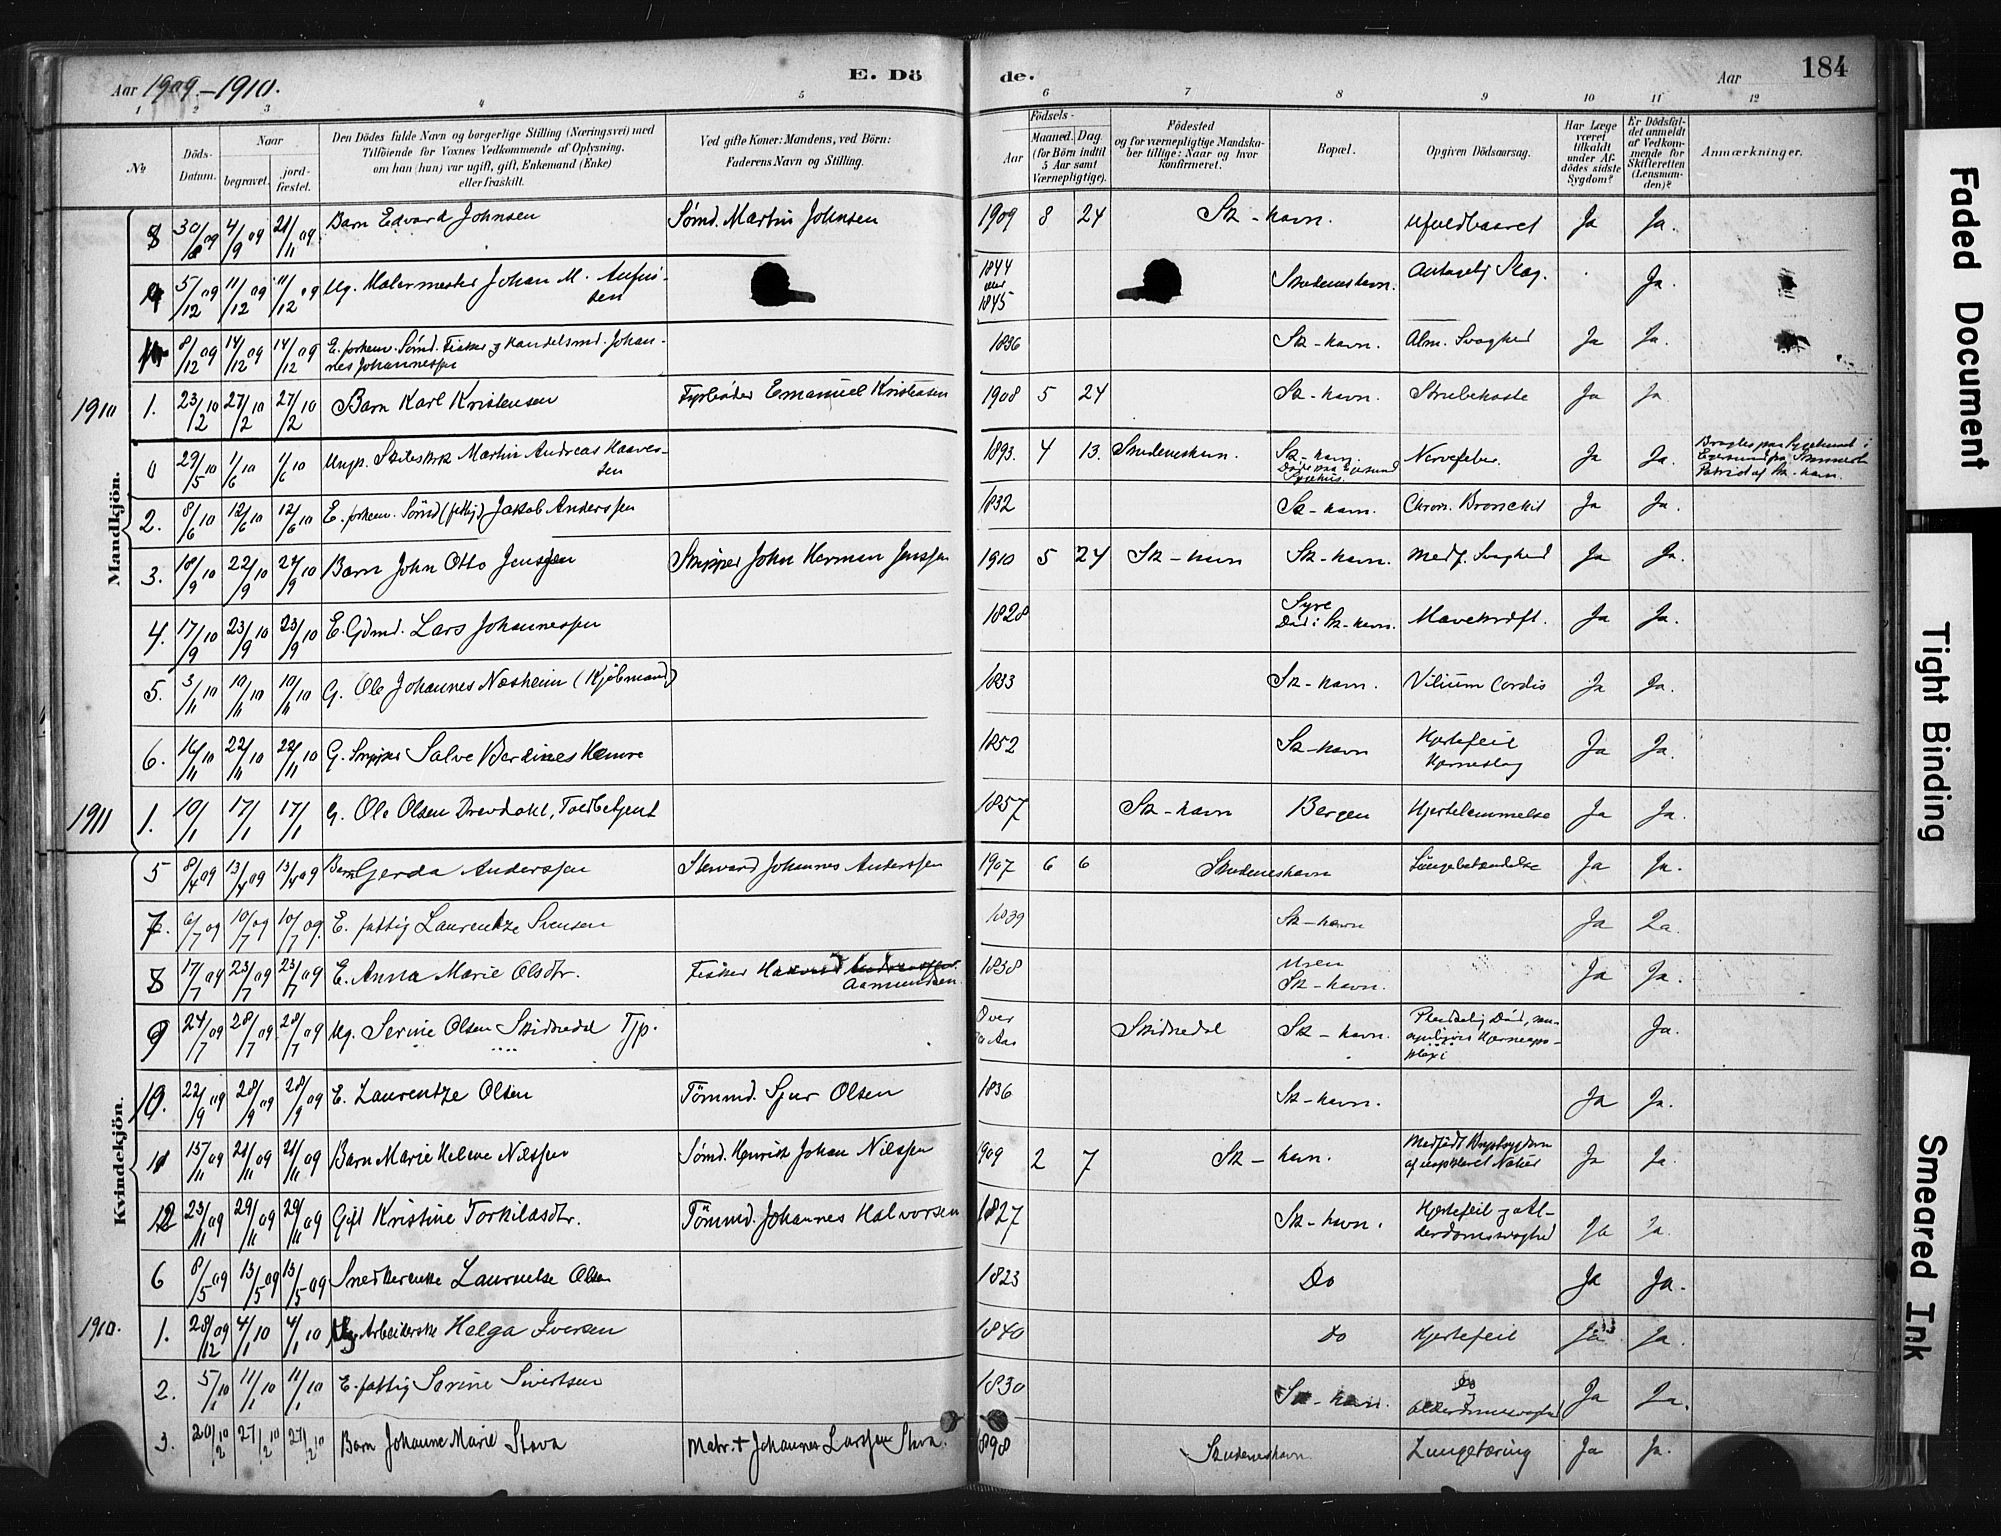 Aar 1909.-1910.
E. Dö
de.
Aar
184
1 2 3 4 5 6 7 8 9 10 11 12
No
Döds-Datum.
Naar
begravet.
jord-fæstet.
Den Dödes fulde Navn og borgerlige Stilling (Næringsvei) med
Tilföiende for Voxnes Vedkommende af Oplysning,
om han (hun) var ugift, gift, Enkemand (Enke)
eller fraskilt.
Ved gifte Koner: Mandens, ved Börn:
Faderens Navn og Stilling.
Födsels-
Aar
Maaned. Dag.
(for Börn indtil
5 Aar samt
Værnepligtige).
Födested
og for værnepligtige Mandska-
ber tillige: Naar og hvor
konfirmeret.
Bopæl.
Opgiven Dödsaarsag.
Har Læge
været
tilkaldt
under Af-
dödes sidste
Sygdom?
Er Dödsfal-
det anmeldt
af Vedkom-
mende for
Skifteretten
(Lensman-
den)?
Anmærkninger.
Mandkjön.
8 30/8 09 4/9 09 21/11 09 Barn Edvard Johnsen Sømd. Martin Johnsen 1909 8 24 Sk-havn. Ufuldbaaret Ja Ja.
9 5/12 09 11/12 09 11/12 09 Ug. Malermester Johan M. 1844 eller 1845 Skudeneshavn. Antagelig Slag. Ja.
8/12 09 14/12 09 14/12 09 E. forhenv. Sømd. Fisker og Handelsmd. Johan-
nes Johannessen 1836 Sk-havn. Alm. Svaghed Ja Ja.
1910 1. 23/2 10 27/2 10 27/2 10 Barn Karl Kristensen Fyrbøder Emanuel Kristensen 1908 5 24 Sk-havn. Strubehoste Ja Ja
0 29/5 10 1/6 10 1/6 10 Ungk. Martin Andreas 1893. 4 13. Skudeneshavn. Sk-havn.
Døde paa Egersund
Sygehus. Nervefeber. Ja Ja.
2. 8/6 10 12/6 10 12/6 10 E. forhenv. Sømd (fattig) Jakob Anderssen 1832 Sk-havn. Chron. Bronchit Ja Ja.
3. 18/9 10 22/9 10 24/9 10 Barn John Otto Jenssen Skipper John Herman Jenssen 1910 5 24 Sk-havn Sk-havn. Medf. Svaghed Ja Ja.
4. 17/9 10 23/9 10 23/9 10 E. Gdmd. Lars Johannessen 1828 Syre
Død i Sk-havn. Mavekræft. Ja Ja.
5. 3/11 10 10/11 10 10/11 10 G. Ole Johannes Næsheim (Kjøbmand) 1833 Sk-havn. Vitium Cordis Ja Ja.
6. 16/11 10 22/11 10 22/11 10 G. Skipper Salve Berdines Hemre 1852 Sk-havn Hjertefeil
Hjerneslag Ja Ja.
1911 1. 10/1 17/1 17/1 G. Ole Olsen Drevdahl, Toldbetjent 1857 Sk-havn Bergen Hjertelammelse Ja Ja.
Kvindekjön.
5 8/4 09 13/4 09 13/4 09 Barn Gerda Anderssen Steward Johannes Anderssen 1907 6 6 Skudeneshavn Lungebetændelse Ja Ja.
7. 6/7 09 10/7 09 10/7 09. E. fattig Laurentze Svensen 1839 Sk-havn Ja Ja.
8 17/7 09 23/7 09 23/7 09 E. Anna Marie Olsdtr. Fisker
Aamundsen 1838 Sk-havn. Ja Ja.
9 24/7 09 28/7 09 28/7 09 Ug. Serine Olsen Skidnedal Tjp. Over Skidnedal Sk-havn. Pludselig Død, san-
synligvis Hjerneapo-
plexi Ja.
10. 22/9 09 28/9 09 28/9 09 E. Laurentze Olsen Tømmd. Sjur Olsen 1836 Sk-havn. Ja Ja.
11 15/11 09 21/11 09 21/11 09 Barn Marie Helene Nilssen Sømd. Henrik Johan Nilssen 1909 2 7 Sk-havn. Medfødt
af uopklaret Natur Ja Ja.
12 23/11 09 29/11 09 29/11 09 Gift Kristine Torkilasdtr. Tømmd. Johannes Halvorsen 1827 Sk-havn. Hjertefeil og Al-
derdomssvaghed Ja Ja.
6 8/5 09 13/5 09 13/5 09 Snedkerenke Laurentse Olsen 1823 Do Ja Ja.
1910. 1. 28/12 09 4/1 10 4/1 10 Ug Arbeiderske Helga Iversen 1840 Do Hjertefeil Ja Ja.
2. 5/1 10 11/1 10 11/1 10 E. fattig Serine Sivertsen 1830 Sk-havn. Do
og
Alderdomssvaghed Ja Ja.
3. 20/2 10 27/2 10 27/2 10 Barn Johanne Marie Stava Matr. + Johannes Larssen Stava. 1898 Skudeneshavn Lungetæring Ja Ja.
Faded Document
Tight Binding
Smeared Ink